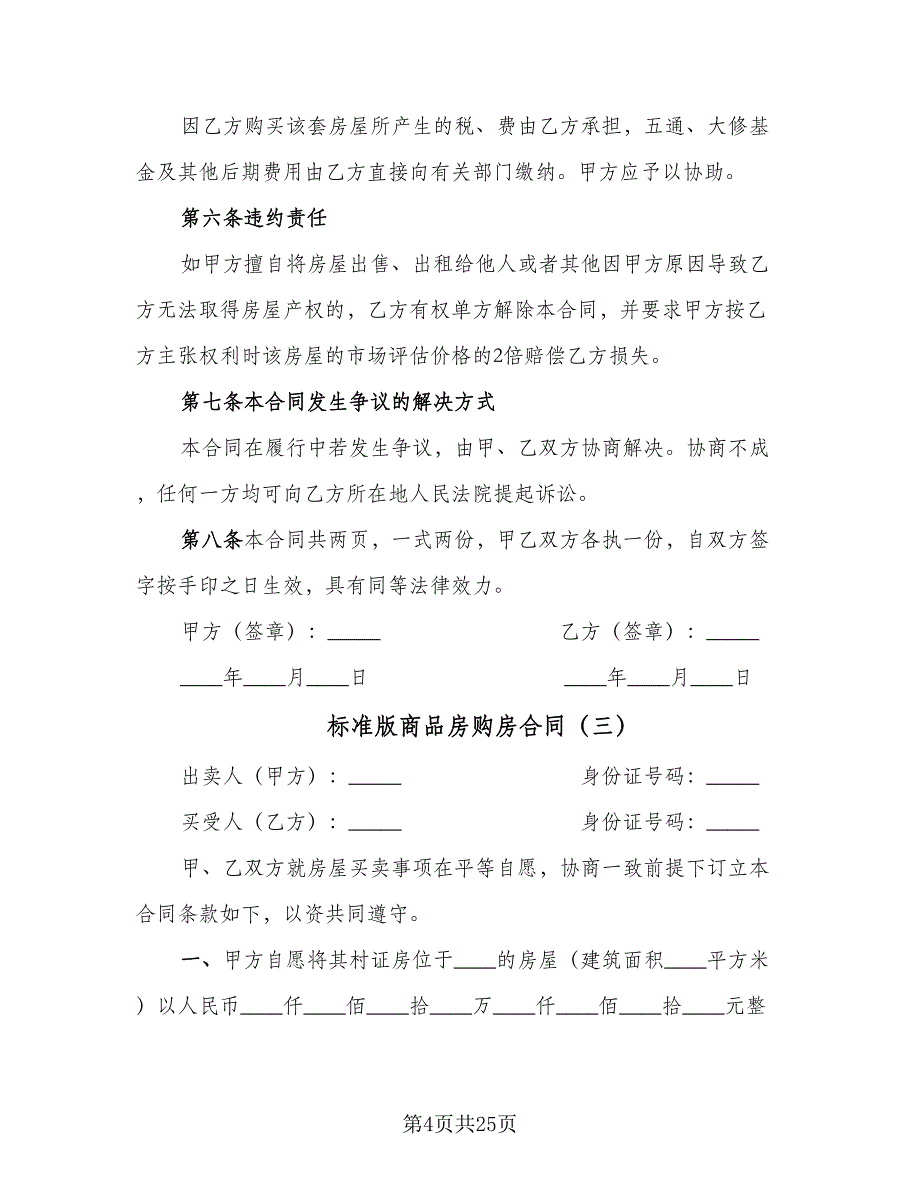 因乙方购买该套房屋所产生的税、费由乙方承担，五通、大修基
金及其他后期费用由乙方直接向有关部门缴纳。甲方应予以协助。
第六条违约责任
如甲方擅自将房屋出售、出租给他人或者其他因甲方原因导致乙
方无法取得房屋产权的，乙方有权单方解除本合同，并要求甲方按乙
方主张权利时该房屋的市场评估价格的2倍赔偿乙方损失。
第七条本合同发生争议的解决方式
本合同在履行中若发生争议，由甲、乙双方协商解决。协商不成
，任何一方均可向乙方所在地人民法院提起诉讼。
第八条本合同共两页，一式两份，甲乙双方各执一份，自双方签
字按手印之日生效，具有同等法律效力。
甲方（签章）：_____ 乙方（签章）：_____
____年____月____日 ____年____月____日
标准版商品房购房合同（三）
出卖人（甲方）：_____ 身份证号码：_____
买受人（乙方）：_____ 身份证号码：_____
甲、乙双方就房屋买卖事项在平等自愿，协商一致前提下订立本
合同条款如下，以资共同遵守。
一、甲方自愿将其村证房位于____的房屋（建筑面积____平方米
）以人民币____仟____佰____拾____万____仟____佰____拾____元整
第4页共25页